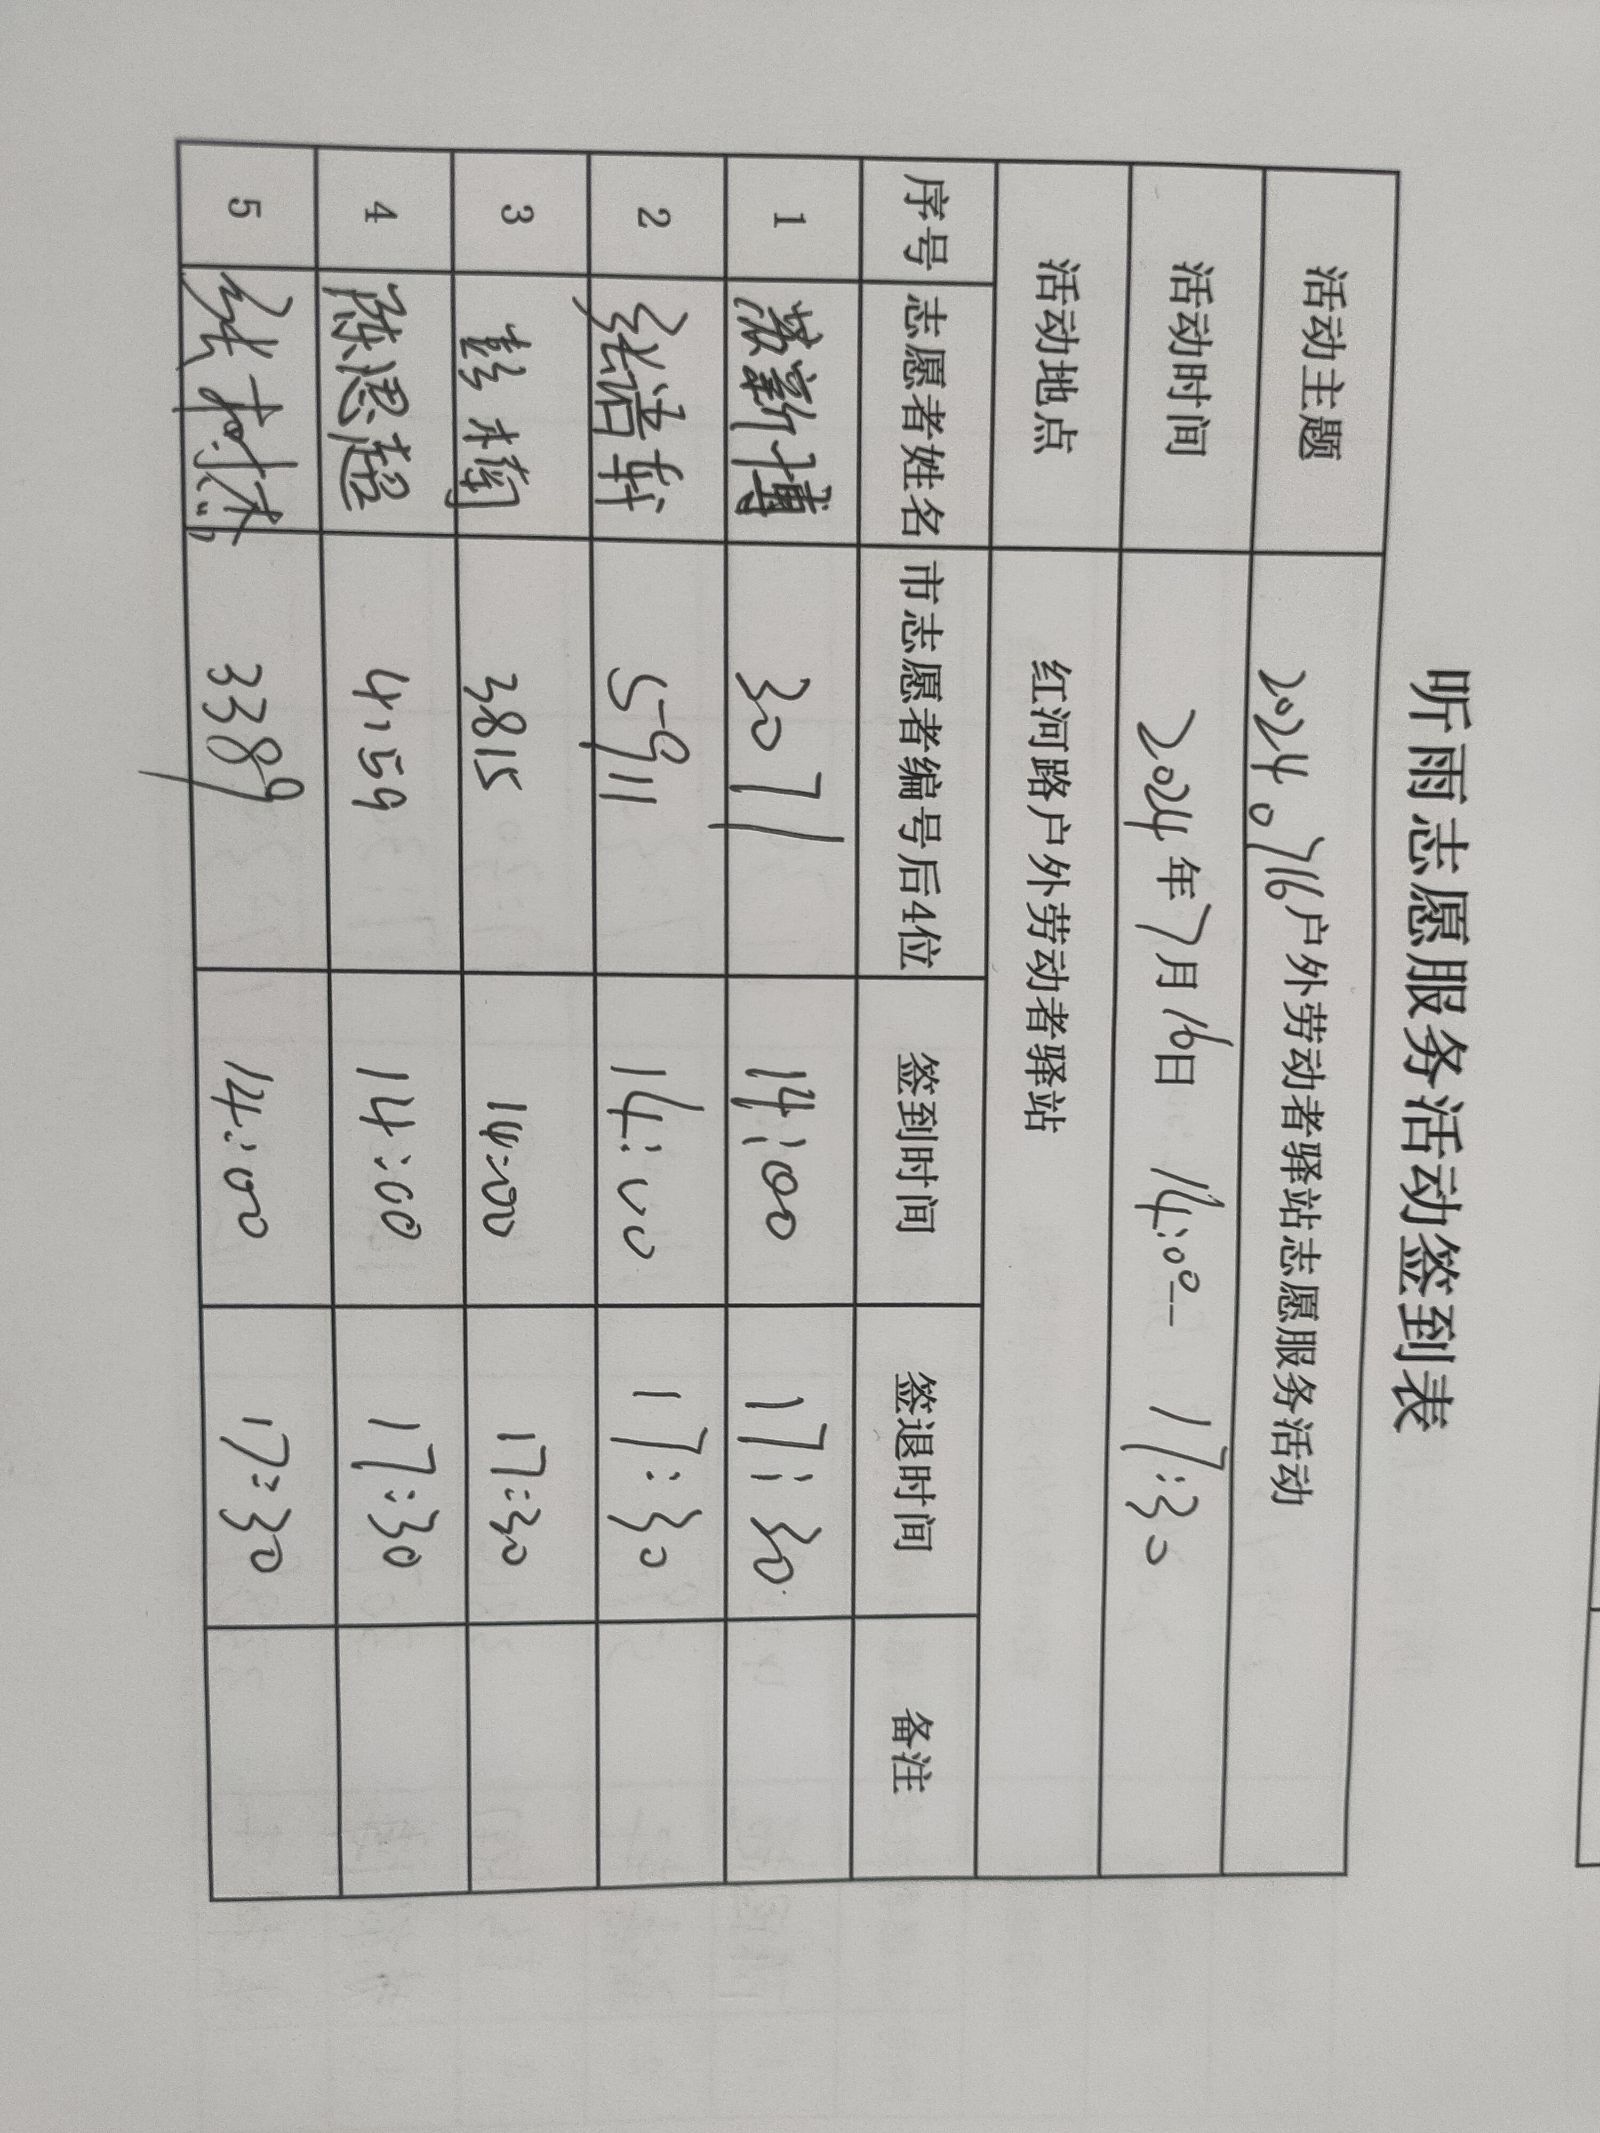 听雨志愿服务活动签到表
活动主题 2024.0716户外劳动者驿站志愿服务活动
活动时间 2024年7月16日 14:00-- 17:30
活动地点 红河路户外劳动者驿站
序号 志愿者姓名 市志愿者编号后4位 签到时间 签退时间 备注
1 苏新博 3071 14:00 17:30
2 5911 14:00 17:30
3 彭楠 3815 14:00 17:30
4 陈思超 4159 14:00 17:30
5 3389 14:00 17:30